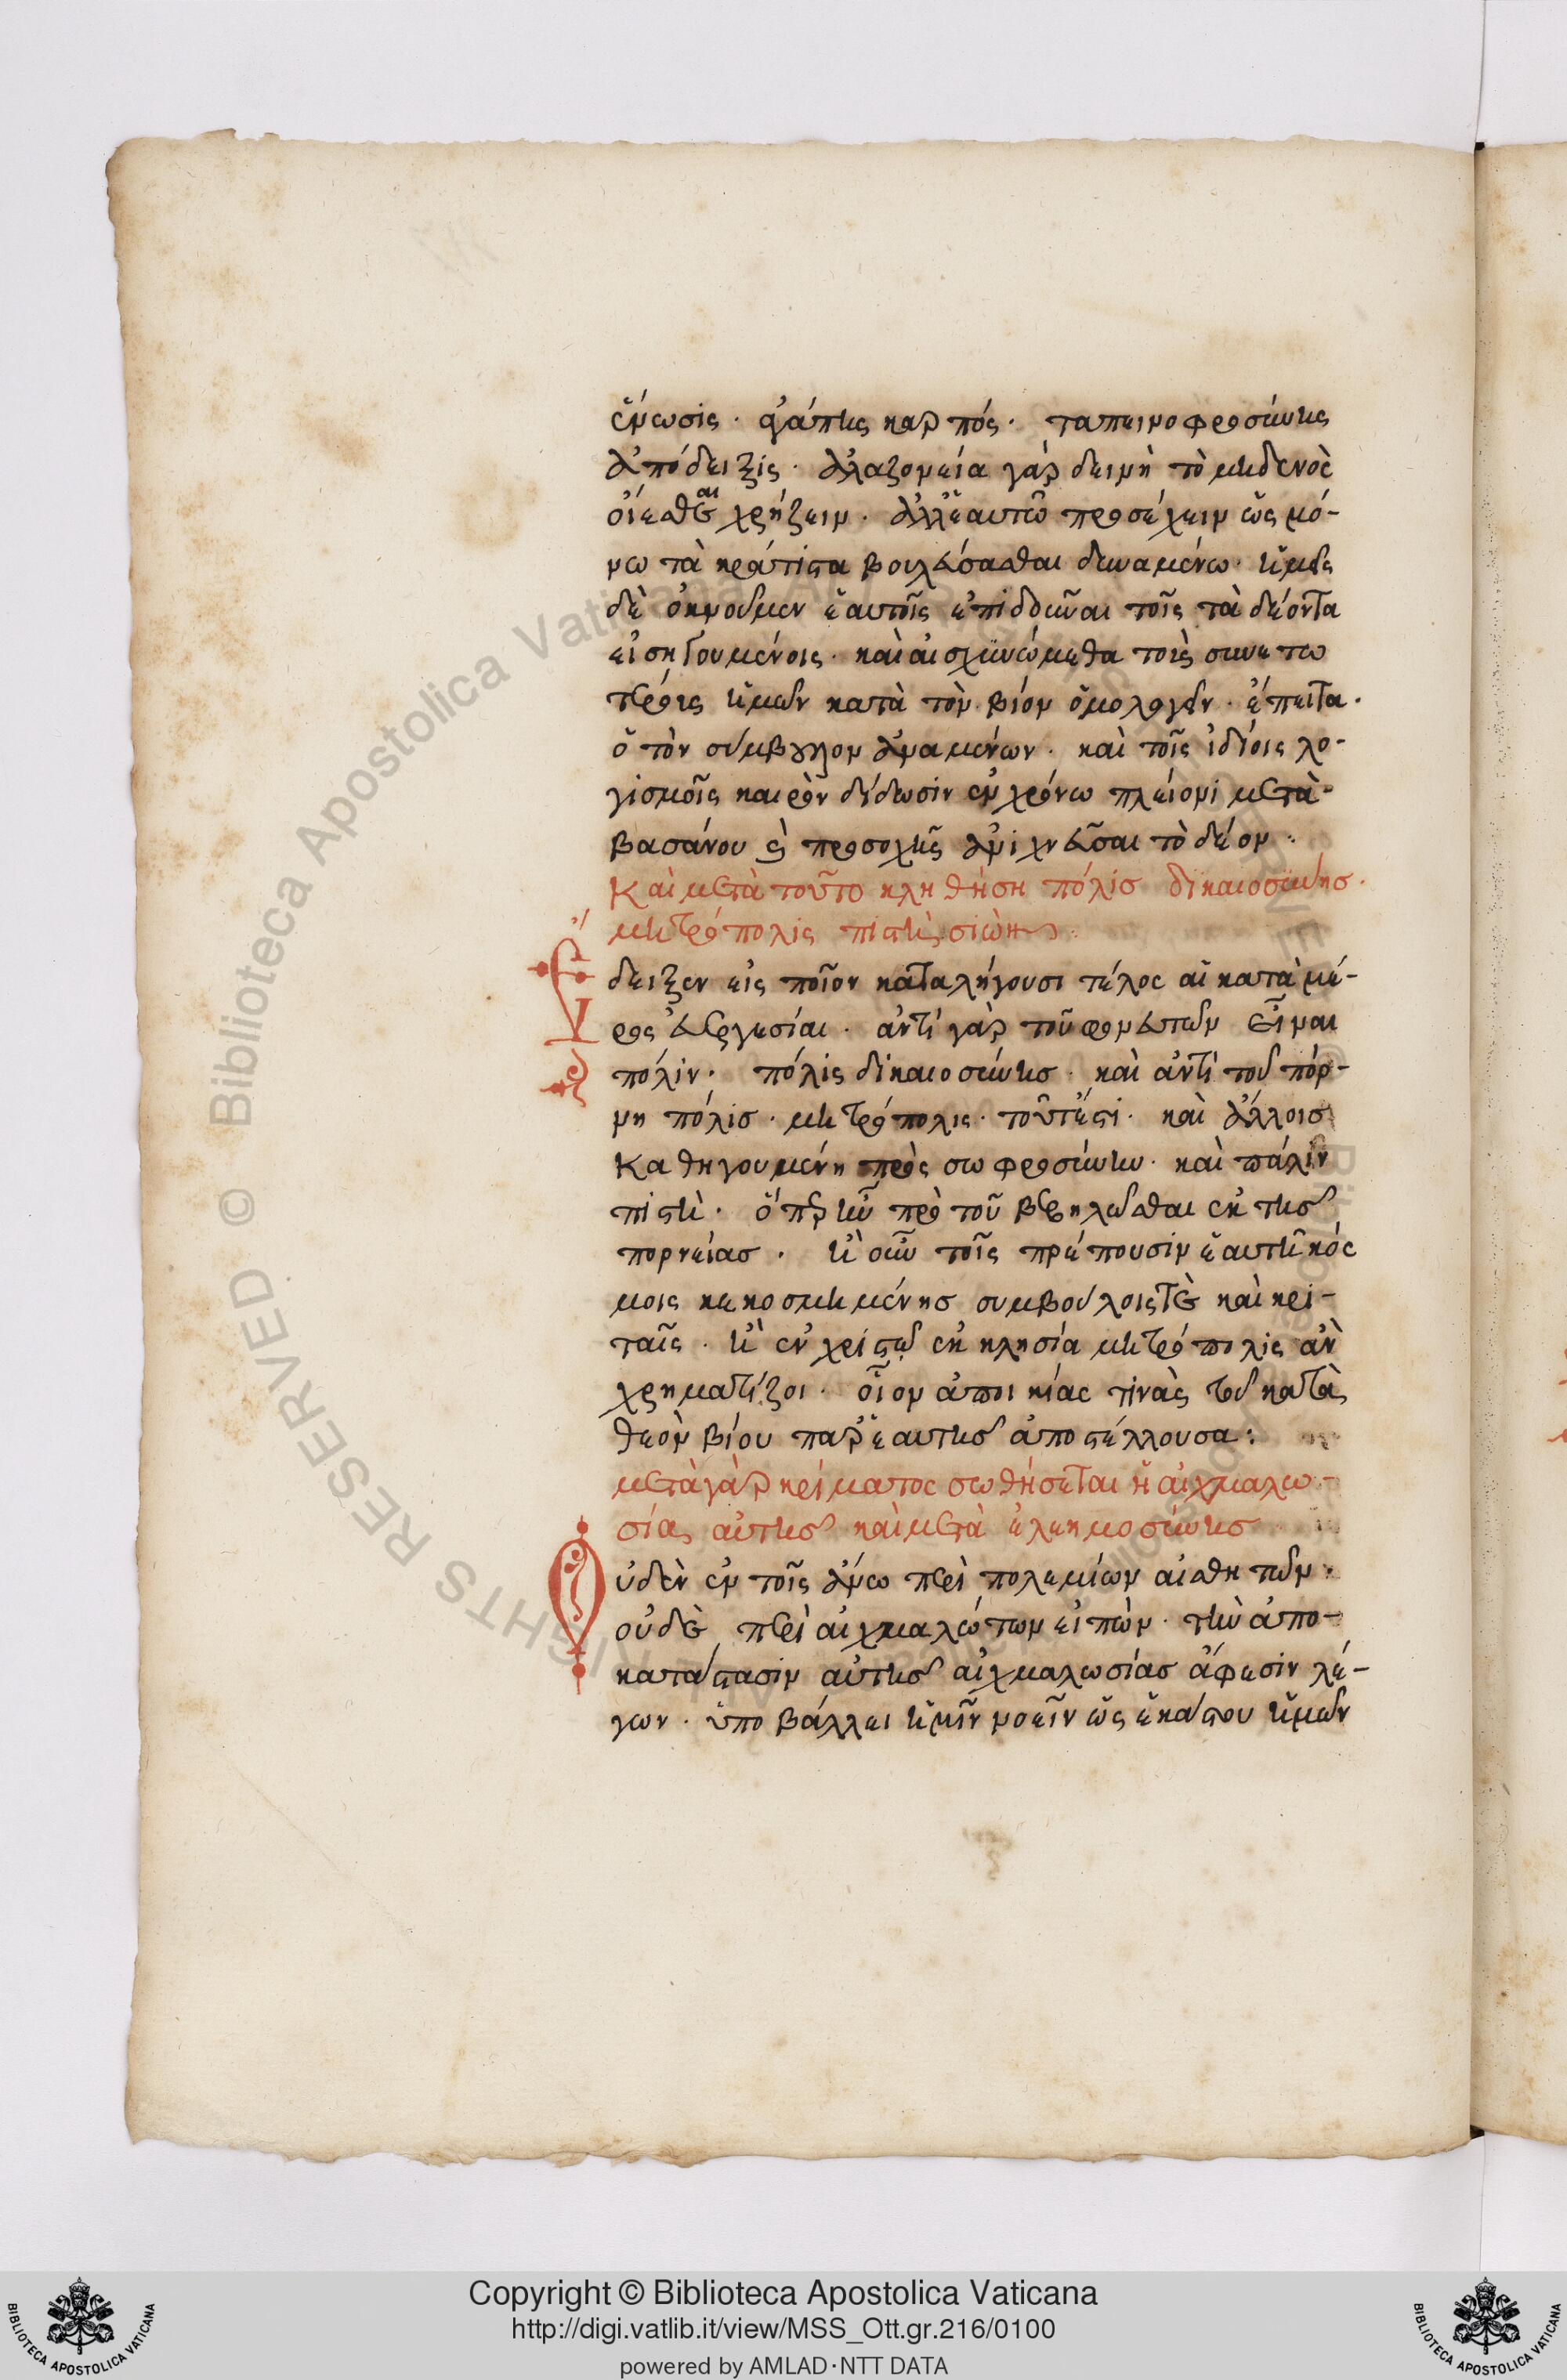 ἕνωσις· ἀγάπης καρπός· ταπεινοφροσύνης
ἀπόδειξις· ἀλαζονεία γὰρ δεινὴ τὸ μηδενὸς
οἴεσθαι χρήζειν· ἀλλ' ἑαυτῶ προσέχειν ὡς μό-
νω τὰ κράτιστα βουλεύσασθαι δυναμένω· ἡμεῖς
δὲ ὀκνοῦμεν ἑαυτοῖς ἐπιδοῦναι τοῖς τὰ δέοντα
εἰσηγουμένοις· καὶ αἰσχυνώμεθα τοὺς συνετω
τέροις ἡμῶν κατὰ τὸν βίον ὁμολογεῖν· ἔπειτα·
ὁ τὸν σύμβουλον ἀναμένων· καὶ τοῖς ἰδίοις λο-
γισμοῖς καιρὸν δίδωσιν ἐν χρόνω πλείονι μετὰ
βασάνου καὶ προσοχῆς ἀνιχνεῦσαι τὸ δέον·
Καὶ μετὰ τοῦτο κληθήση πόλις δικαιοσύνης·
μητρόπολις πιστὴ σιών·
Ἔ
δειξεν εἰς ποῖον καταλήγουσι τέλος αἱ κατὰ μέ-
ρος εὐεργεσίαι· ἀντὶ γὰρ τοῦ φονευτῶν εἶναι
πόλιν· πόλις δικαιοσύνης· καὶ ἀντὶ τοῦ πόρ-
νη πόλις· μητρόπολις· τουτέστι· καὶ ἄλλοις
καθηγουμένη πρὸς σωφροσύνην· καὶ πάλιν
πιστή· ὅπερ ἦν πρὸ τοῦ βεβηλῶσθαι ἐκ τῆς
πορνείας· ἡ οὖν τοῖς πρέπουσιν ἑαυτῆ κόσ
μοις κεκοσμημένης συμβούλοις τὲ καὶ κρι-
ταῖς· ἡ ἐν χριστῶ ἐκκλησία μητρόπολις ἂν
χρηματίζοι· οἷον ἀποικίας τινὰς τοῦ κατὰ
θεὸν βίου παρ' ἑαυτῆς ἀποστέλλουσα:
μετὰ γὰρ κρίματος σωθήσεται ἡ αἰχμαλω-
σίας αὐτῆς καὶ μετὰ ἐλεημοσύνης
Ο
ὐδὲν ἐν τοῖς ἄνω περὶ πολεμίων αἰσθητῶν·
οὐδὲ περὶ αἰχμαλώτων εἰπὼν· τὴν ἀπο-
κατάστασιν αὐτῆς αἰχμαλωσίας ἄφεσιν λέ-
γων· ὑποβάλλει ἡμῖν νοεῖν ὡς ἑκάστου ἡμῶν
Copyright © Biblioteca Apostolica Vaticana
http://digi.vatlib.it/view/MSS_Ott.gr.216/0100
powered by AMLAD·NTT DATA
BIBLIOTECA APOSTOLICA VATICANA
BIBLIOTECA APOSTOLICA VATICANA